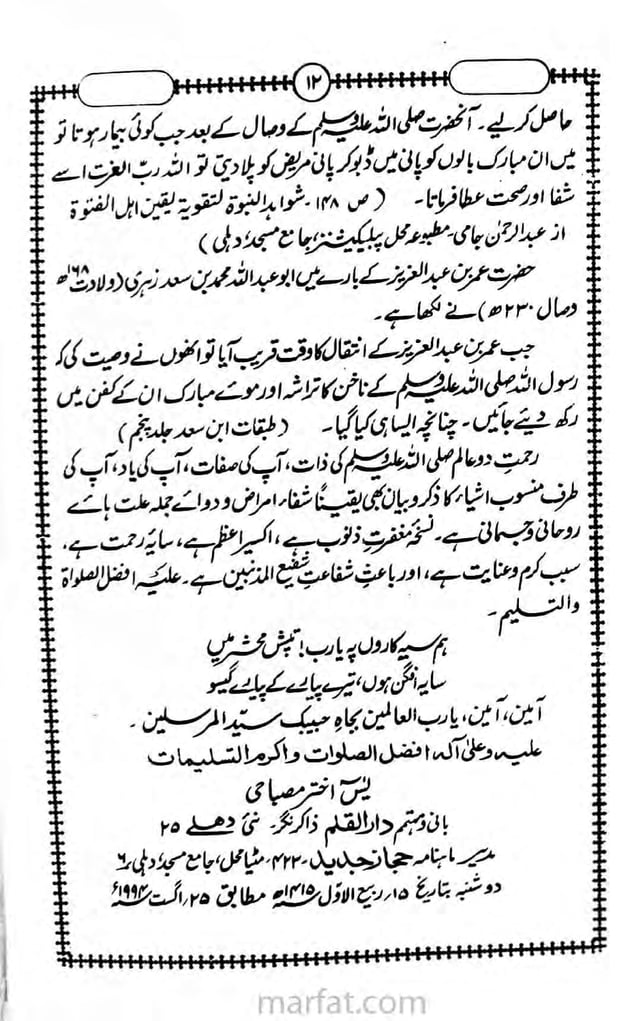 ۱۲
حاصل کر لیے۔ آنحضرت صلی اللہ علیہ وسلم کے وصال کے بعد جب کوئی بیمار ہوتا تو
میں ان مبارک بالوں کو پانی میں ڈبو کر پانی مریض کو پلا دیتی تو اللہ ربّ العزت اسے
شفا اور صحت عطا فرماتا۔ (ص ۱۴۸۔ شواہد النبوۃ لتقویۃ یقین اہل الفتوۃ
از عبد الرحمٰن جامی۔ مطبوعہ محل پبلیکیشنز، جامع مسجد، دہلی)
حضرت عمر بن عبد العزیز کے بارے میں ابو عبد اللہ محمد بن سعد زہری (ولادت ۱۶۸ھ
وصال ۲۳۰ھ) نے لکھا ہے۔
جب عمر بن عبد العزیز کے انتقال کا وقت قریب آیا تو انھوں نے وصیت کی کہ
رسول اللہ صلی اللہ علیہ وسلم کے ناخن کا تراشہ اور موے مبارک ان کے کفن میں
رکھ دیئے جائیں۔ چنانچہ ایسا ہی کیا گیا۔ (طبقات ابن سعد جلد پنجم)
رحمتِ دو عالم صلی اللہ علیہ وسلم کی ذات، آپ کی صفات، آپ کی یاد، آپ کی
طرف منسوب اشیاء کا ذکر و بیان بھی یقیناً شفاء امراض و دوائے جملہ علت ہائے
روحانی و جسمانی ہے۔ نسخۂ مغفرتِ ذنوب ہے، اکسیر اعظم ہے، سایہ رحمت ہے،
سبب کرم و عنایت ہے، اور باعثِ شفاعتِ شفیع المذنبین ہے۔ علیہ افضل الصلواۃ
والتسلیم۔
ہم سیہ کاروں پہ یارب! تپش محشر میں
سایہ افگن ہوں، تیرے پیارے کے پیارے گیسو
آمین، آمین، یارب العالمین بجاہ حبیبک سیّد المرسلین۔
علیہ وعلیٰ آلہ افضل الصلوات و اکرم التسلیمات
یٰسٓ اختر مصباحی
بانی و مہتمم دار القلم ذاکر نگر۔ نئی دھلی ۲۵
مدیر ماہنامہ حجاز جدید۔ ۴۲۲۔ مٹیا محل، جامع مسجد، دہلی ۶
دوشنبہ بتاریخ ۱۵؍ ربیع الاوّل ۱۴۱۵ھ مطابق ۲۵؍ اگست ۱۹۹۴ء
marfat.com